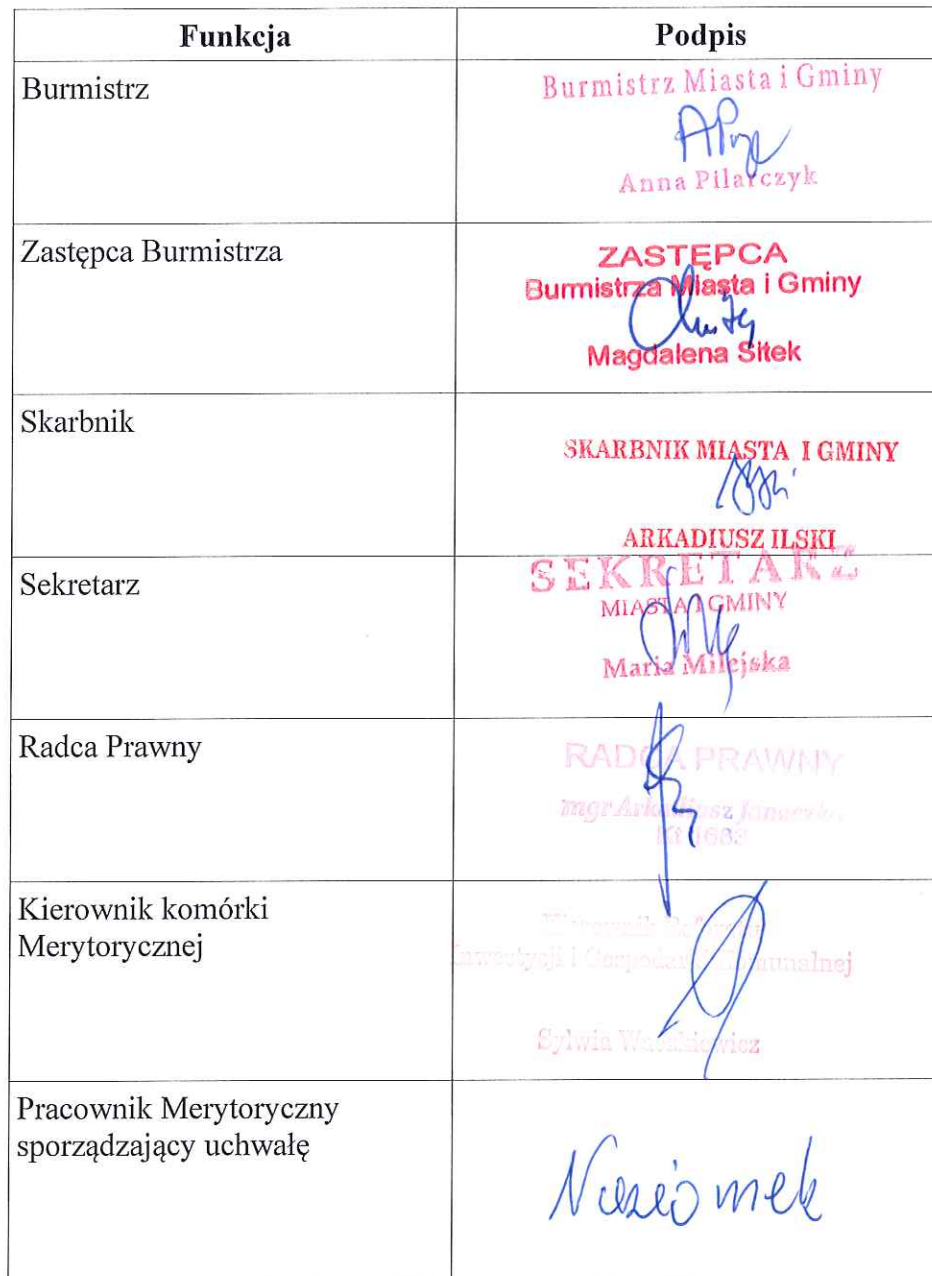 Funkcja Podpis
Burmistrz
Burmistrz Miasta i Gminy
Anna Pilarczyk
Zastępca Burmistrza
ZASTĘPCA
Burmistrza Miasta i Gminy
Magdalena Sitek
Skarbnik
SKARBNIK MIASTA I GMINY
ARKADIUSZ ILSKI
Sekretarz
SEKRETARZ
MIASTA I GMINY
Maria Milejska
Radca Prawny
RADCA PRAWNY
mgr Arkadiusz
Kierownik komórki
Merytorycznej
Kierownik Referatu
Inwestycji i Gospodarki Komunalnej
Sylwia
Pracownik Merytoryczny
sporządzający uchwałę